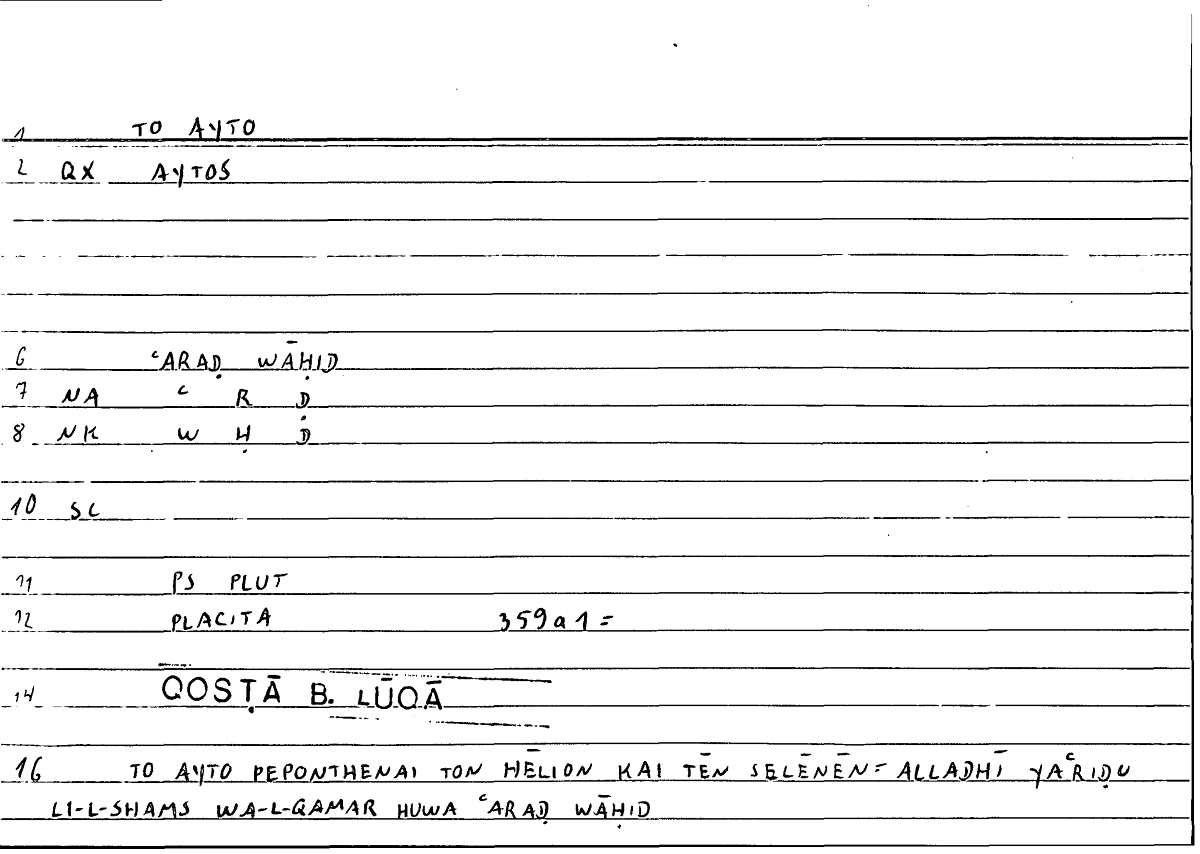 1 TO AYTO
2 QX AYTOS
6 ʿARAḌ WĀḤID
7 NA ʿ R Ḍ
8 NK W Ḥ Ḍ
10 SC
11 PS PLUT
12 PLACITA 359a1=
14 QOSṬĀ B. LŪQĀ
16 TO AYTO PEPONTHENAI TON HĒLION KAI TĒN SELĒNĒN= ALLADHĪ YAʿRIḌU
LI-L-SHAMS WA-L-QAMAR HUWA ʿARAḌ WĀḤID